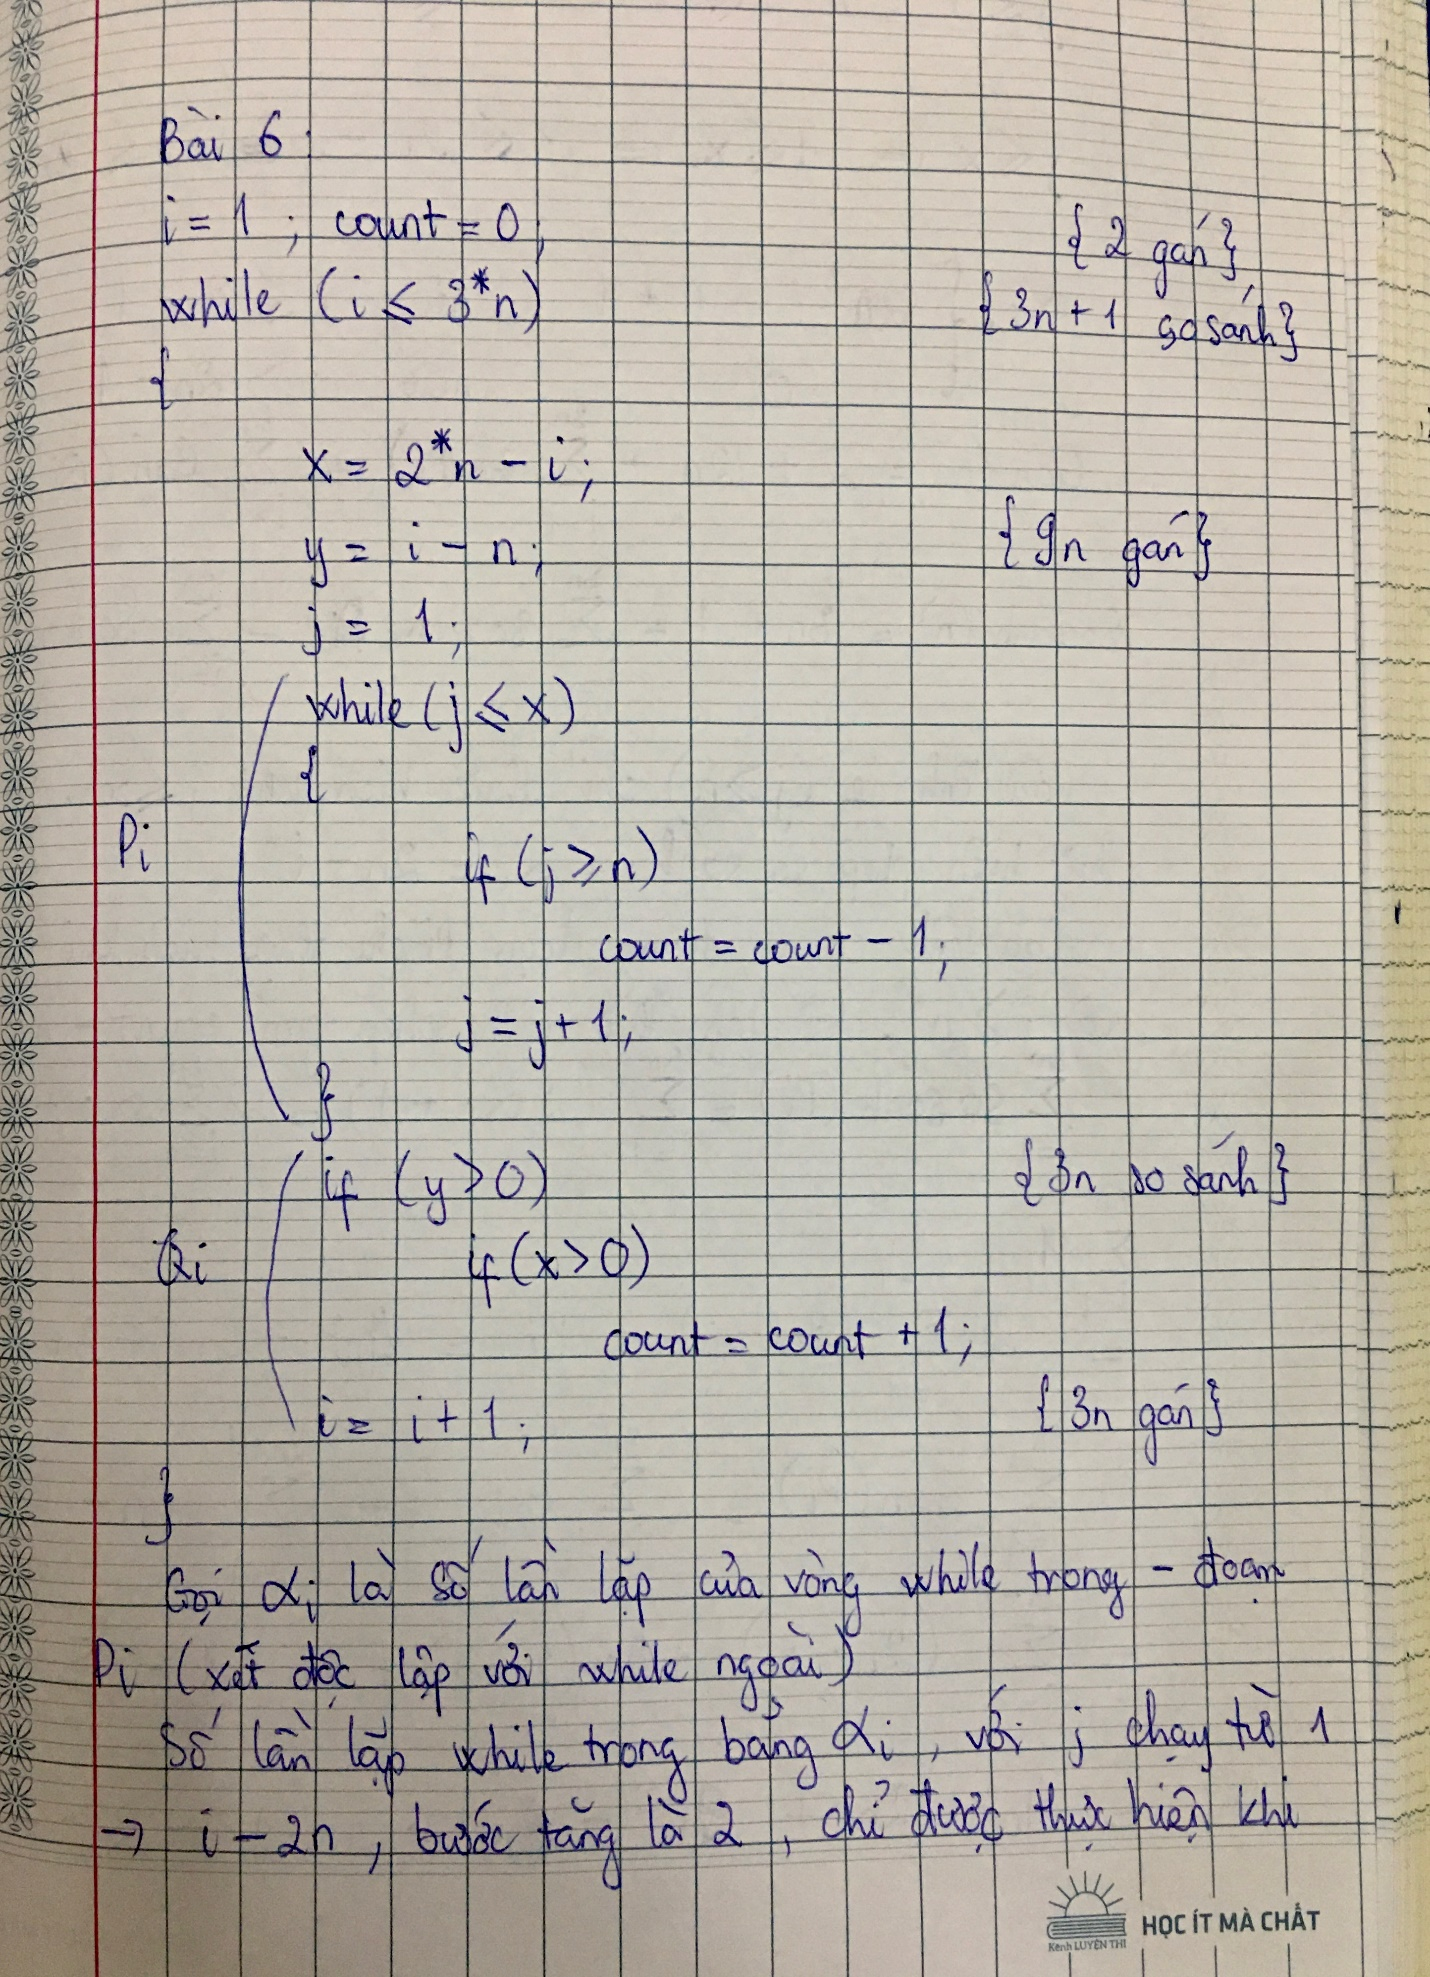 Bài 6:
i = 1 ; count = 0; {2 gán}
while (i ≤ 3*n) {3n + 1 so sánh}
{
x = 2*n - i;
y = i - n; {9n gán}
j = 1;
while (j ≤ x)
{
Pi
if (j ≥ n)
count = count - 1;
j = j + 1;
}
if (y > 0) {3n so sánh}
Qi if (x > 0)
count = count + 1;
i = i + 1; {3n gán}
}
Gọi αi là số lần lặp của vòng while trong - đoạn
Pi (xét độc lập với while ngoài)
Số lần lặp while trong bằng αi, với j chạy từ 1
→ i - 2n, bước tăng là 2, chỉ được thực hiện khi
Kênh LUYỆN THI HỌC ÍT MÀ CHẤT